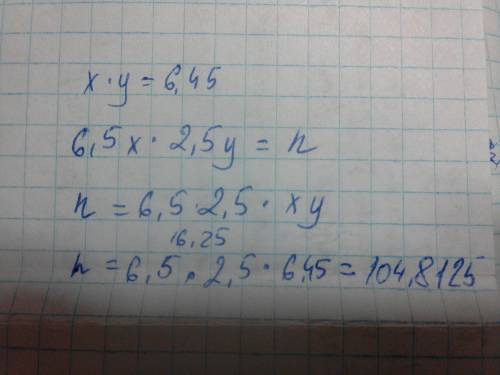 x·y = 6,45
6,5x · 2,5y = n
n = 6,5·2,5· xy
16,25
n = 6,5 · 2,5 · 6,45 = 104,8125